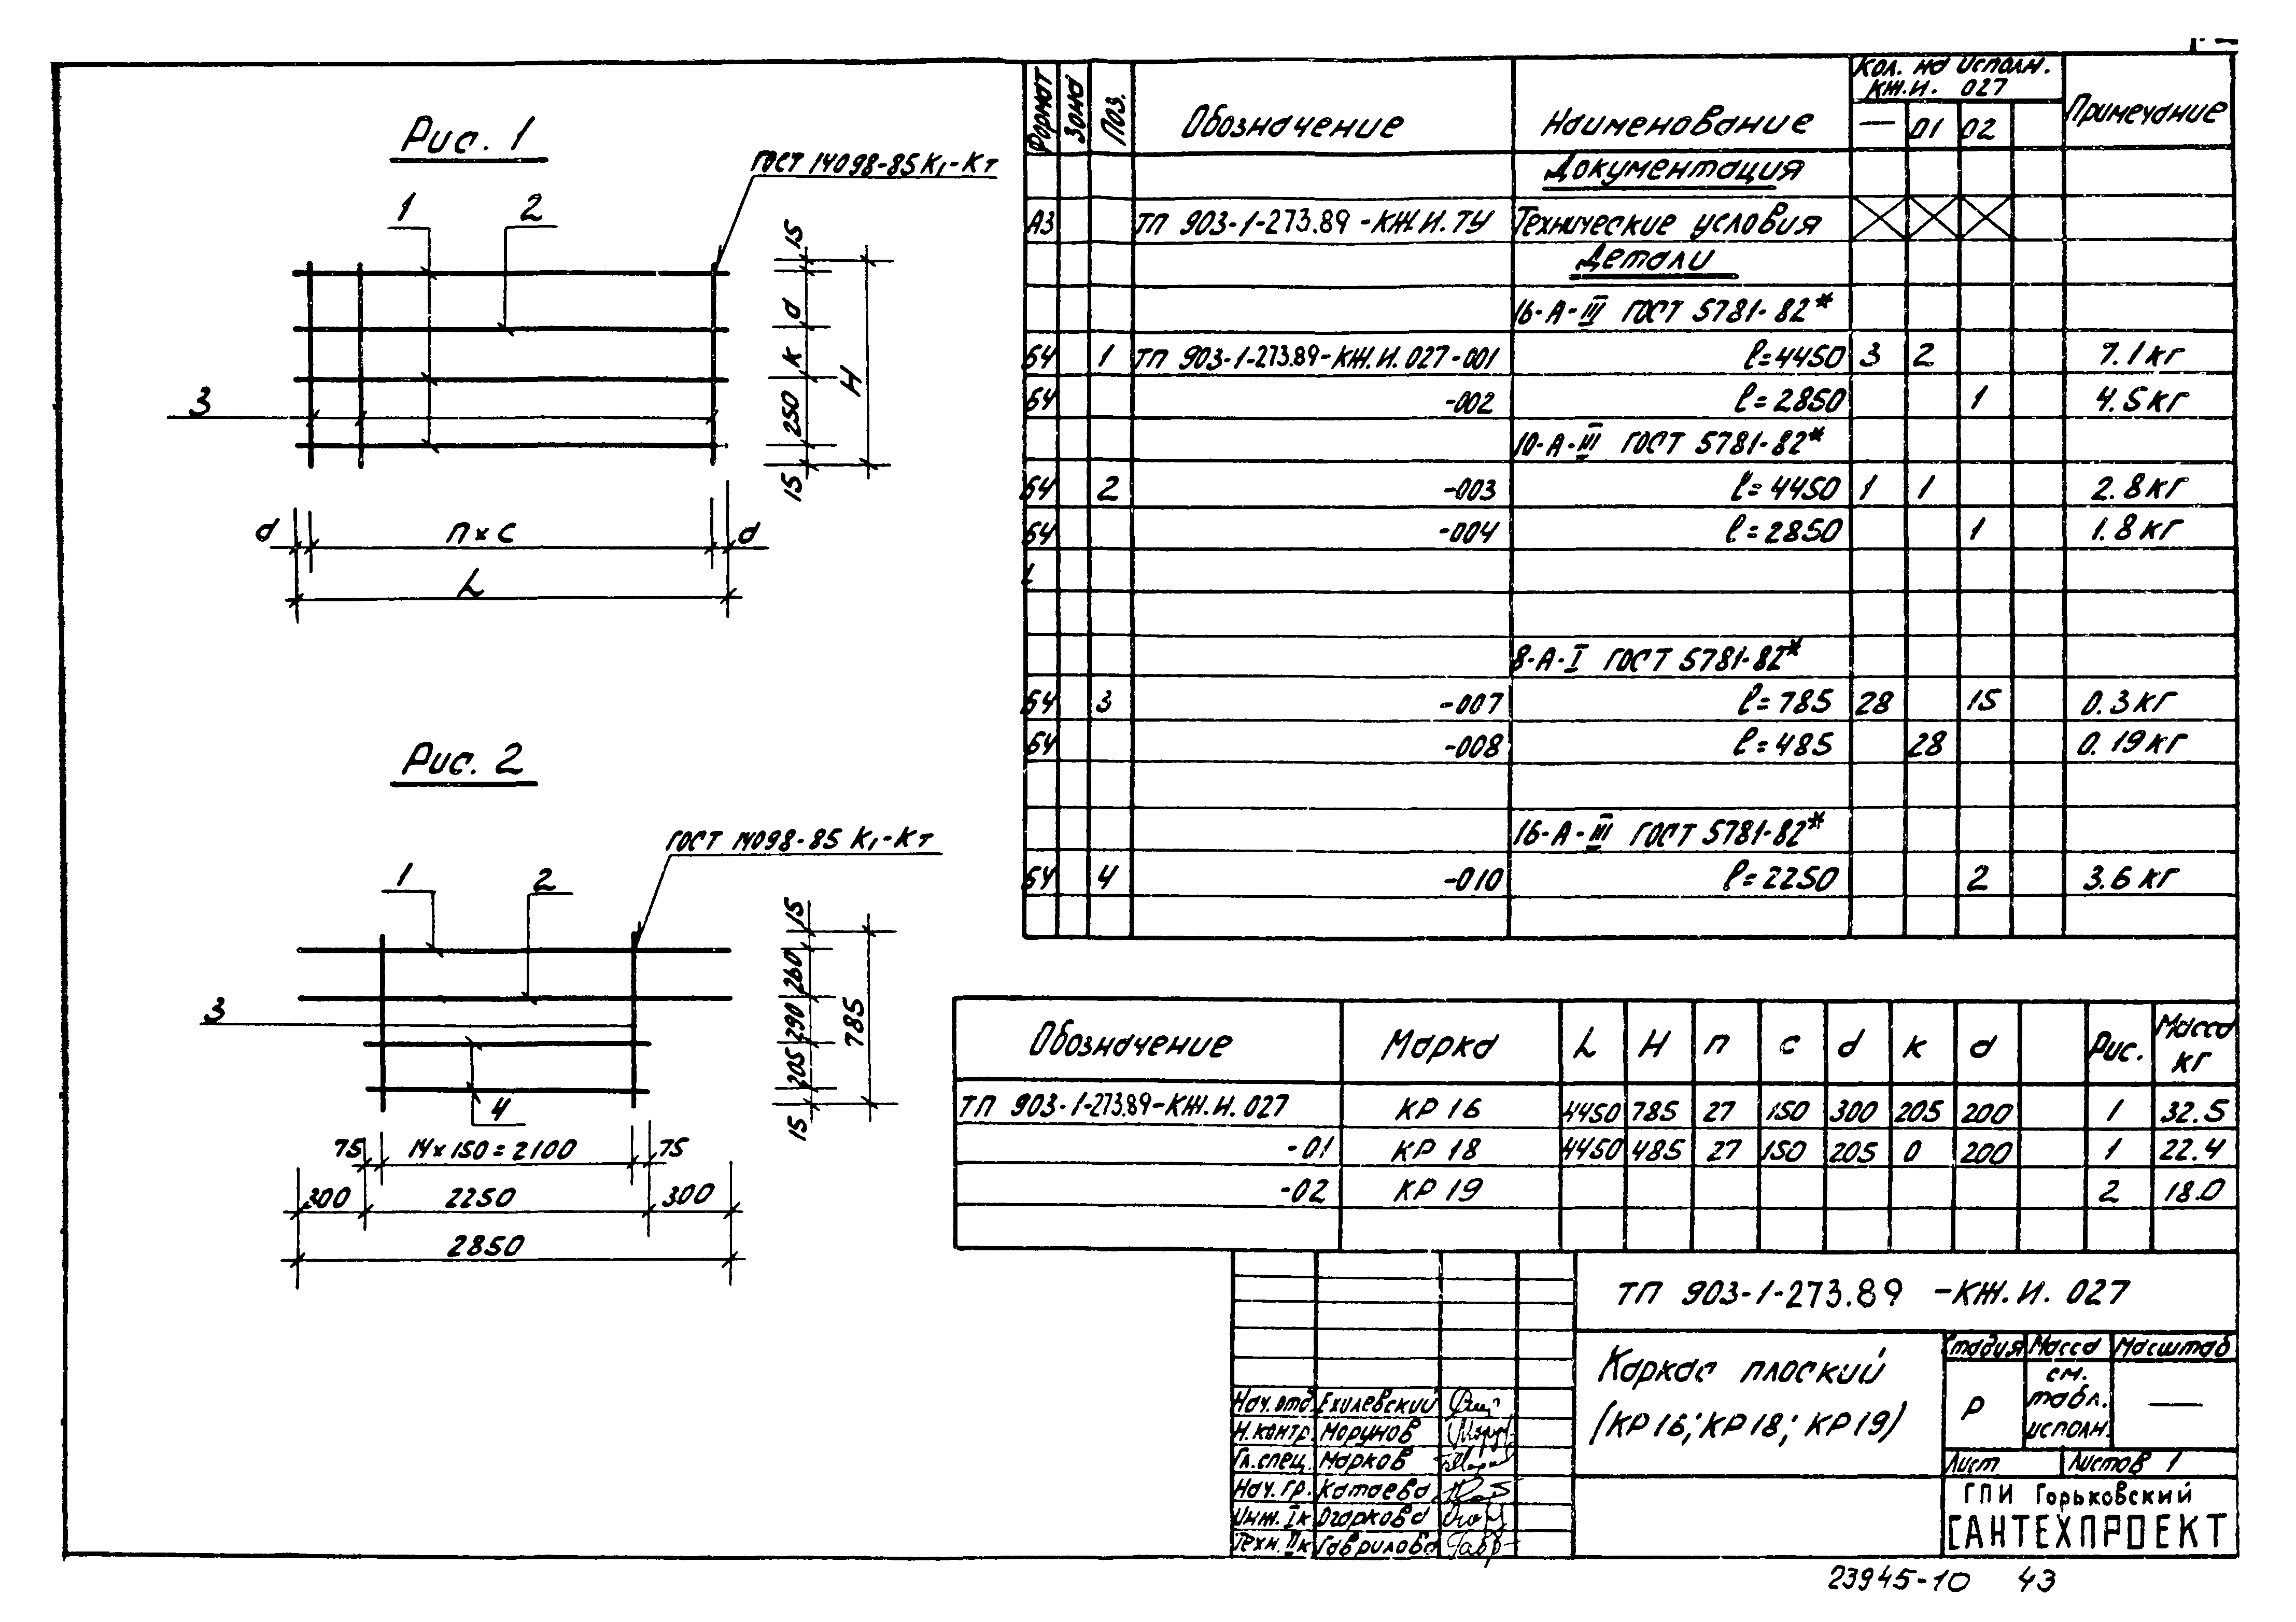 Рис. 1
ГОСТ 14098-85 К1-Кт
1 2
3
15
d
к
250
15
H
d n×c d
L
Рис. 2
ГОСТ 14098-85 К1-Кт
1 2
3
4
15
260
290
205
15
785
75 14×150=2100 75
300 2250 300
2850
Формат Зона Поз. Обозначение Наименование Кол. на исполн. КЖ.И. 027 Примечание
— 01 02
Документация
А3 ТП 903-1-273.89-КЖ.И.ТУ Технические условия
Детали
16-А-III ГОСТ 5781-82*
БЧ 1 ТП 903-1-273.89-КЖ.И.027-001 ℓ=4450 3 2 7.1кг
БЧ -002 ℓ=2850 1 4.5кг
10-А-III ГОСТ 5781-82*
БЧ 2 -003 ℓ=4450 1 1 2.8кг
БЧ -004 ℓ=2850 1 1.8кг
8-А-I ГОСТ 5781-82*
БЧ 3 -007 ℓ=785 28 15 0.3кг
БЧ -008 ℓ=485 28 0.19кг
16-А-III ГОСТ 5781-82*
БЧ 4 -010 ℓ=2250 2 3.6кг
Обозначение Марка L H п с d к а Рис. Масса кг
ТП 903-1-273.89-КЖ.И.027 КР 16 4450 785 27 150 300 205 200 1 32.5
-01 КР 18 4450 485 27 150 205 0 200 1 22.4
-02 КР 19 2 18.0
ТП 903-1-273.89 -КЖ.И. 027
Каркас плоский
(КР16; КР18; КР19)
Стадия Масса Масштаб
Р см. табл. исполн. —
Лист Листов 1
ГПИ Горьковский
САНТЕХПРОЕКТ
Нач. отд. Ехилевский
Н. контр. Морунов
Гл. спец. Марков
Нач. гр. Катаева
Инж. Iк Огаркова
Техн. IIк Гаврилова
23945-10 43